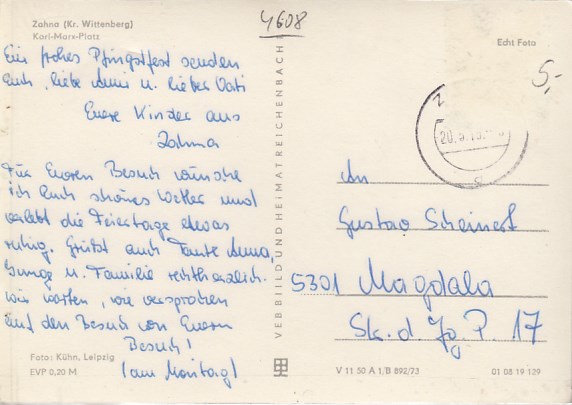 4608
Zahna (Kr. Wittenberg)
Karl-Marx-Platz
Echt Foto
5,-
Ein frohes Pfingstfest senden
Euch, liebe u. lieber Vati
Euere Kinder aus
Zahna
Für Eueren Besuch wünsche
ich Euch schönes Wetter und
verlebt die Feiertage etwas
ruhig. Grüßt auch Tante Anna,
u. Familie recht herzlich.
Wir warten, wie versprochen
auf den Besuch von Euern
Besuch!
(am Montag)
VEB BILD UND HEIMAT REICHENBACH
20.5.
An
Gustav Scheinert
5301 Magdala
Sk. d. Jg. P. 17
Foto: Kühn, Leipzig
EVP 0,20 M
V 11 50 A 1/B 892/73
01 08 19 129